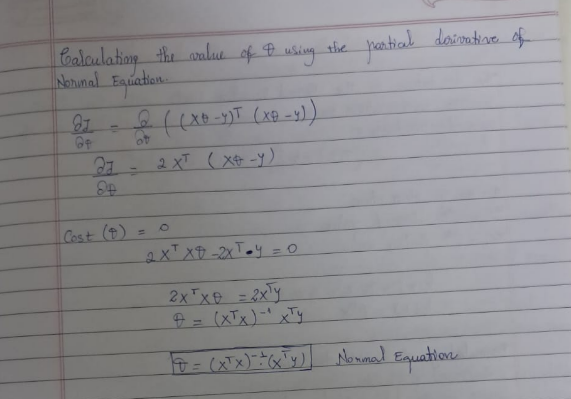 Calculating the value of θ using the partial derivative of
Normal Equation.
∂J/∂θ = ∂/∂θ ((Xθ - y)ᵀ (Xθ - y))
∂J/∂θ = 2Xᵀ (Xθ - y)
Cost (θ) = 0
2XᵀXθ - 2Xᵀ•y = 0
2XᵀXθ = 2Xᵀy
θ = (XᵀX)⁻¹ Xᵀy
θ = (XᵀX)⁻¹·(Xᵀy) Normal Equation